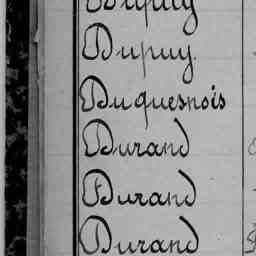 Dupuy
Dupuy.
Duquesnois
Durand
Durand
Durand